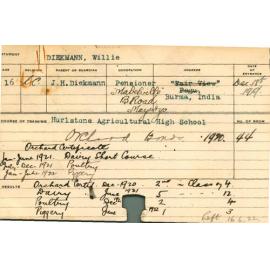 STUDENT
DIEKMANN, Willie
RELIGION PARENT OR GUARDIAN OCCUPATION ADDRESS
16 J.H.Diekmann Pensioner "Fair View" Dec 18th
B Road
Burma, India
COURSE OF TRAINING Hurlstone Agricultural High School NO. OF ROOM
1920. 44
Orchard Certificate
Jan-June 1921. Dairy Short Course
July-Dec 1921 Poultry
Jan-June 1922. Piggery
RESULTS Orchard Certif. Dec. 1920 2nd in Class of 4
Dairy June 1921 5 12
Poultry Dec 2 4
Piggery June 1922 1 3
Left 16.6.22